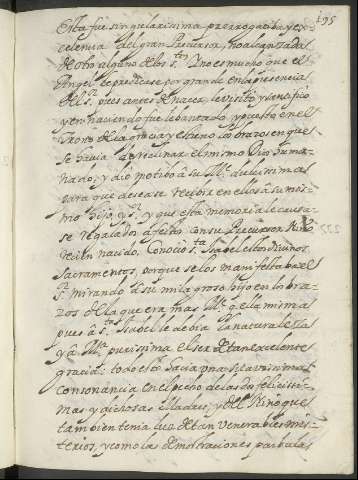 195
Esta fue singularissima prerrogatiba y ex
celencia del gran Precursor, no alcanzada
de otro alguno de los Stos. y no es mucho que el
Angel le predicase por grande en la presencia
del Sr. pues antes de nacer, le visitó y santificó
y en naciendo fue lebantado, y puesto en el
trono de la gracia, y estrenó los brazos en que
se havia de reclinar el mismo Dios huma
nado, y dió motibo a su Me. dulcissima
para que desease recibir en ellos a su mis
mo hijo, y Sr. y que esta memoria le causa
se regalados afectos con su Precursor Niño
recien nacido. Conoció Sta. Isabel estos divinos
sacramentos, porque se los manifestaba el
Sr. mirando a su milagroso hijo en los bra
zos de la que era mas Me. q ella misma
pues a Sta. Isabel le debia la naturaleza
y a Ma. purissima el ser de tan excelente
gracia: todo esto hacia una suavissima
consonancia en el pecho de las dos felicissi
mas y dichosas Madres, y del Niño que
tambien tenia luz de tan venerables mis
terios, y como las demostraciones parbulas